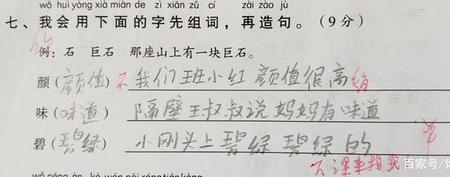 wǒ huì yòng xià miàn de zì xiān zǔ cí zài zào jù
七、我会用下面的字先组词，再造句。（9分）
例：石 巨石 那座山上有一块巨石。
颜（颜值）不 我们班小红颜值很高
味（味道）隔壁王叔叔说妈妈有味道
碧（碧绿）小刚头上碧绿碧绿的
下课来找我
百家号